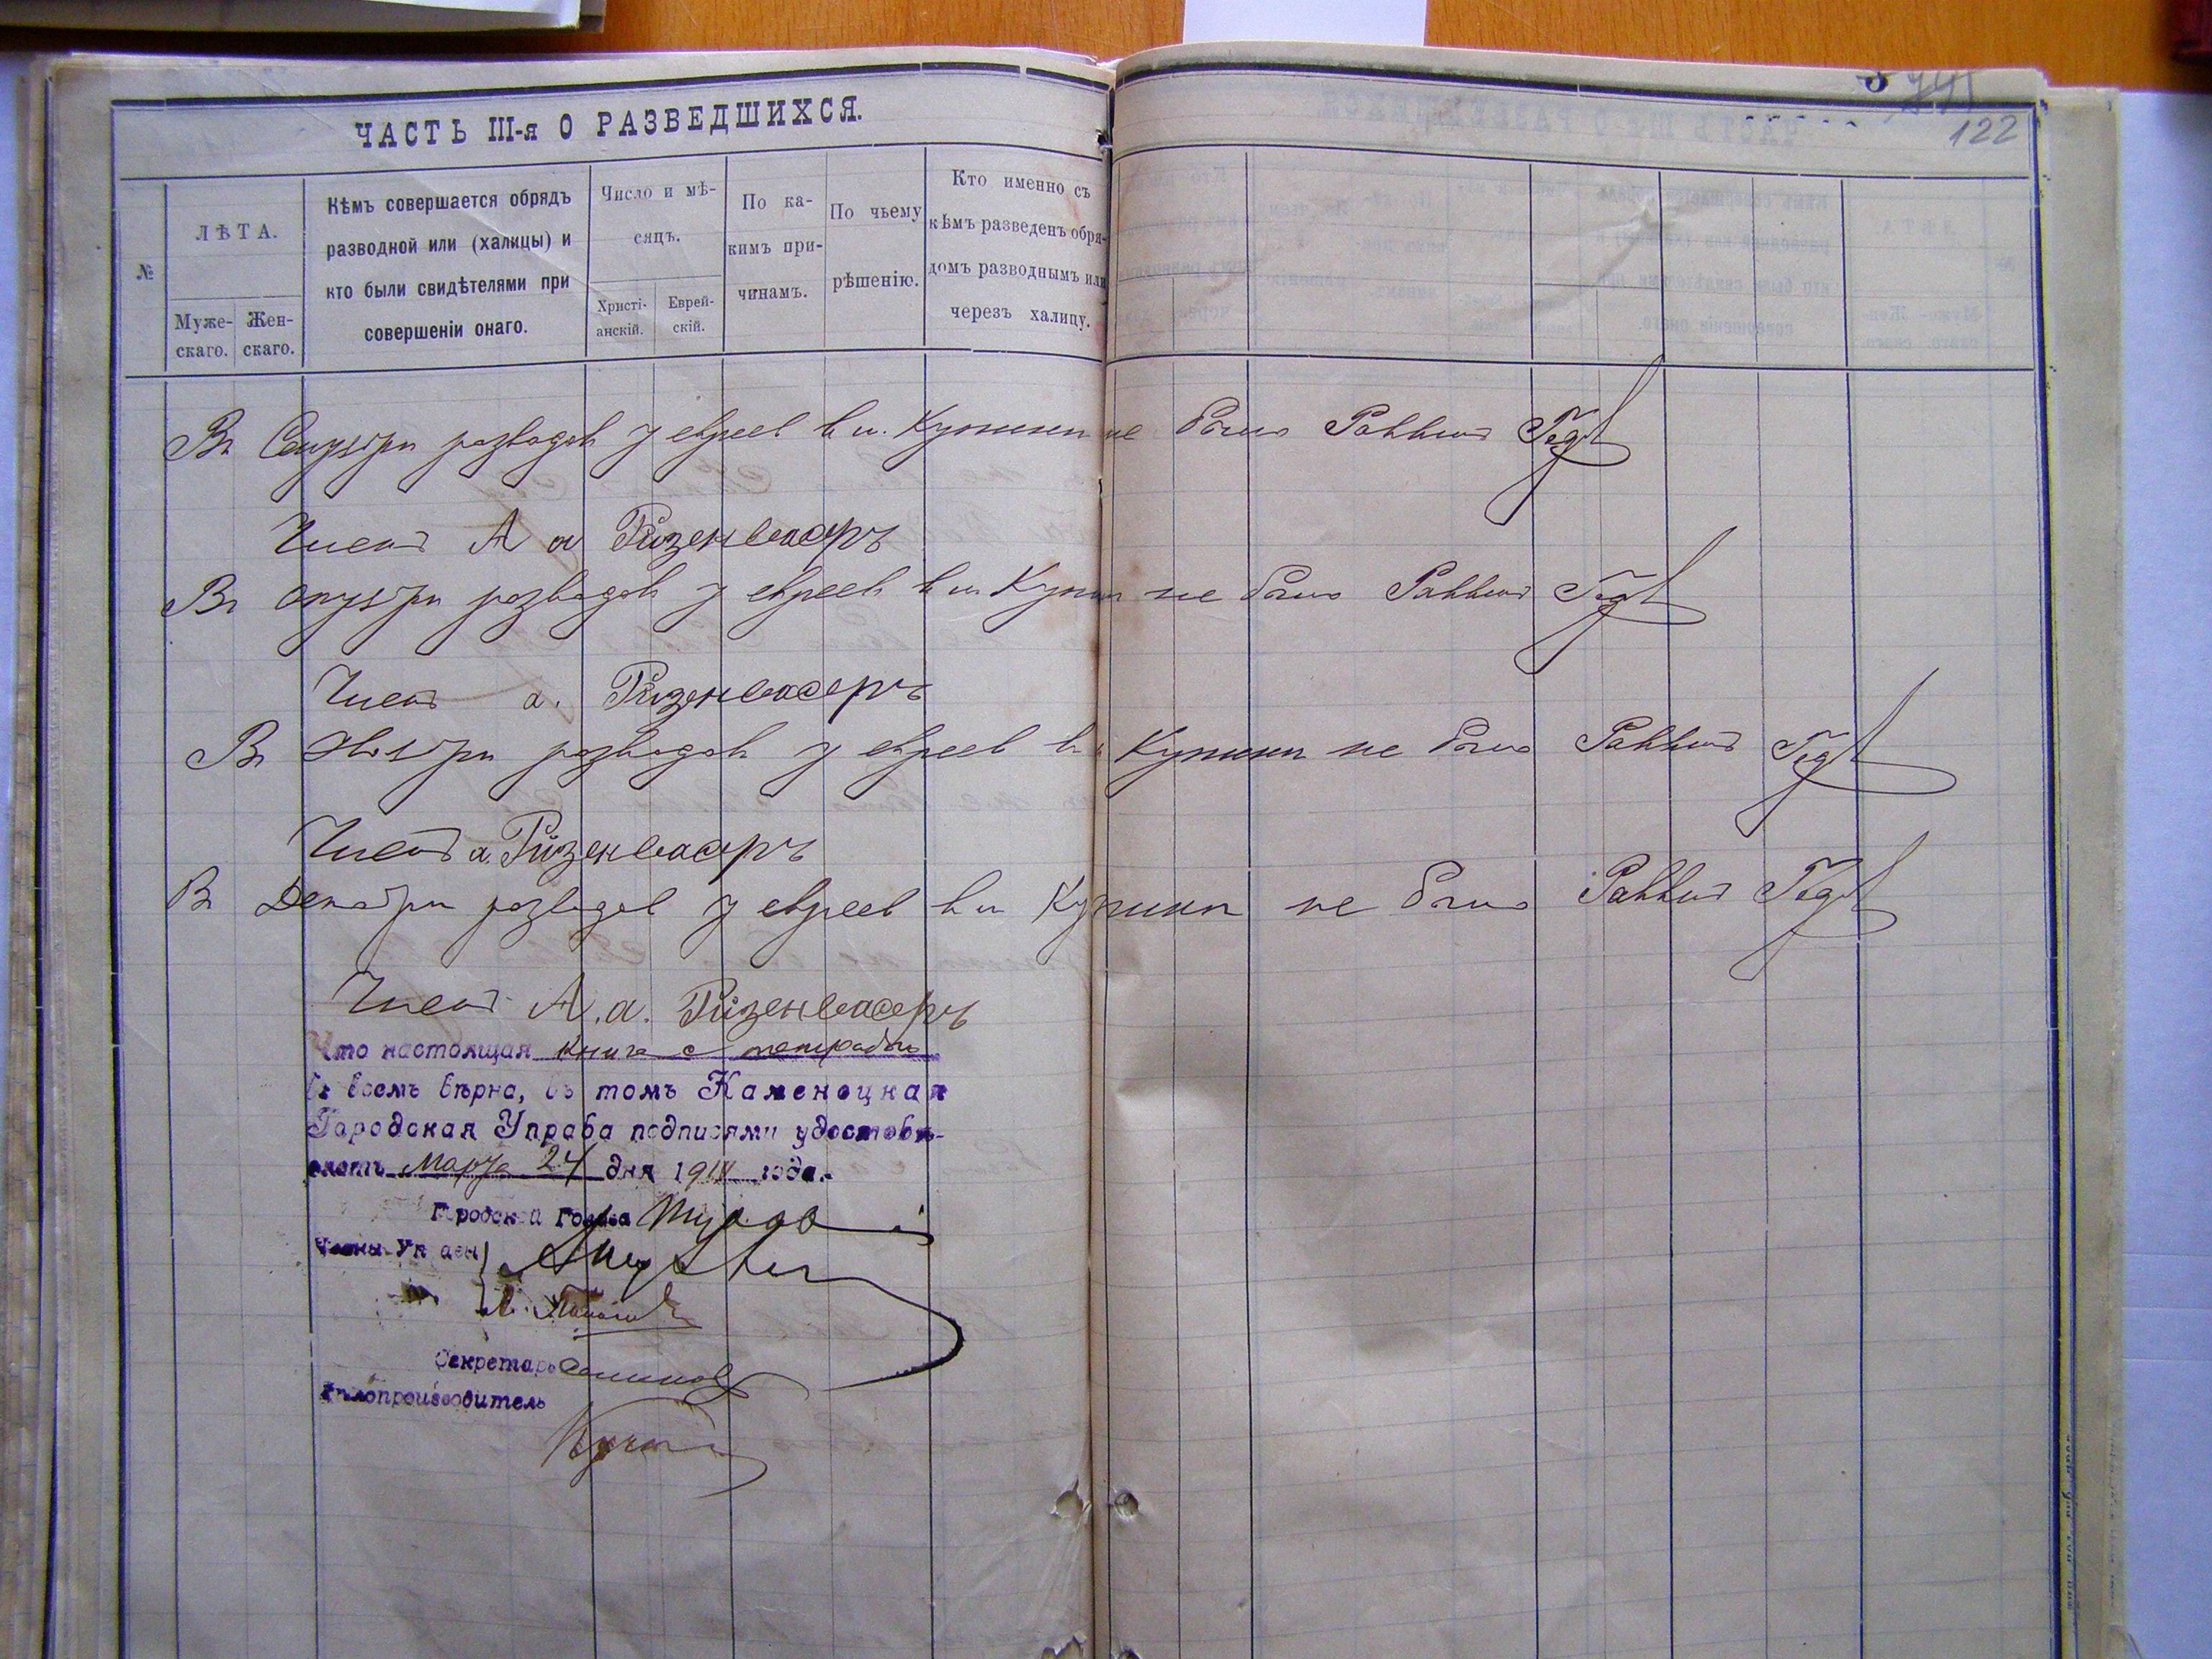 ЧАСТЬ III-я О РАЗВЕДШИХСЯ.
122
№
ЛѢТА.
Муже-
скаго.
Жен-
скаго.
Кѣмъ совершается обрядъ
разводной или (халицы) и
кто были свидѣтелями при
совершеніи онаго.
Число и мѣ-
сяцъ.
Христі-
анскій.
Еврей-
скій.
По ка-
кимъ при-
чинамъ.
По чьему
рѣшенію.
Кто именно съ
кѣмъ разведенъ обря-
домъ разводнымъ или
черезъ халицу.
Въ разводов у евреев в м. Купини не было Раввин
А а Ризенвасеръ
Въ разводов у евреев в м Купин не было Раввин
а. Ризенвасеръ
Въ Ноябри разводов у евреев в м Купини не было Раввин
а. Ризенвасеръ
В Декабри разводов у евреев в м Купини не было Раввин
А. а. Ризенвасеръ
Что настоящая книга с тетрадью
во всемъ вѣрна, въ томъ Каменецкая
Городская Управа подписями удостовѣ-
ряетъ Марта 24 дня 191 года.
Городской Голова
Члены Управы
Секретарь
Дѣлопроизводитель